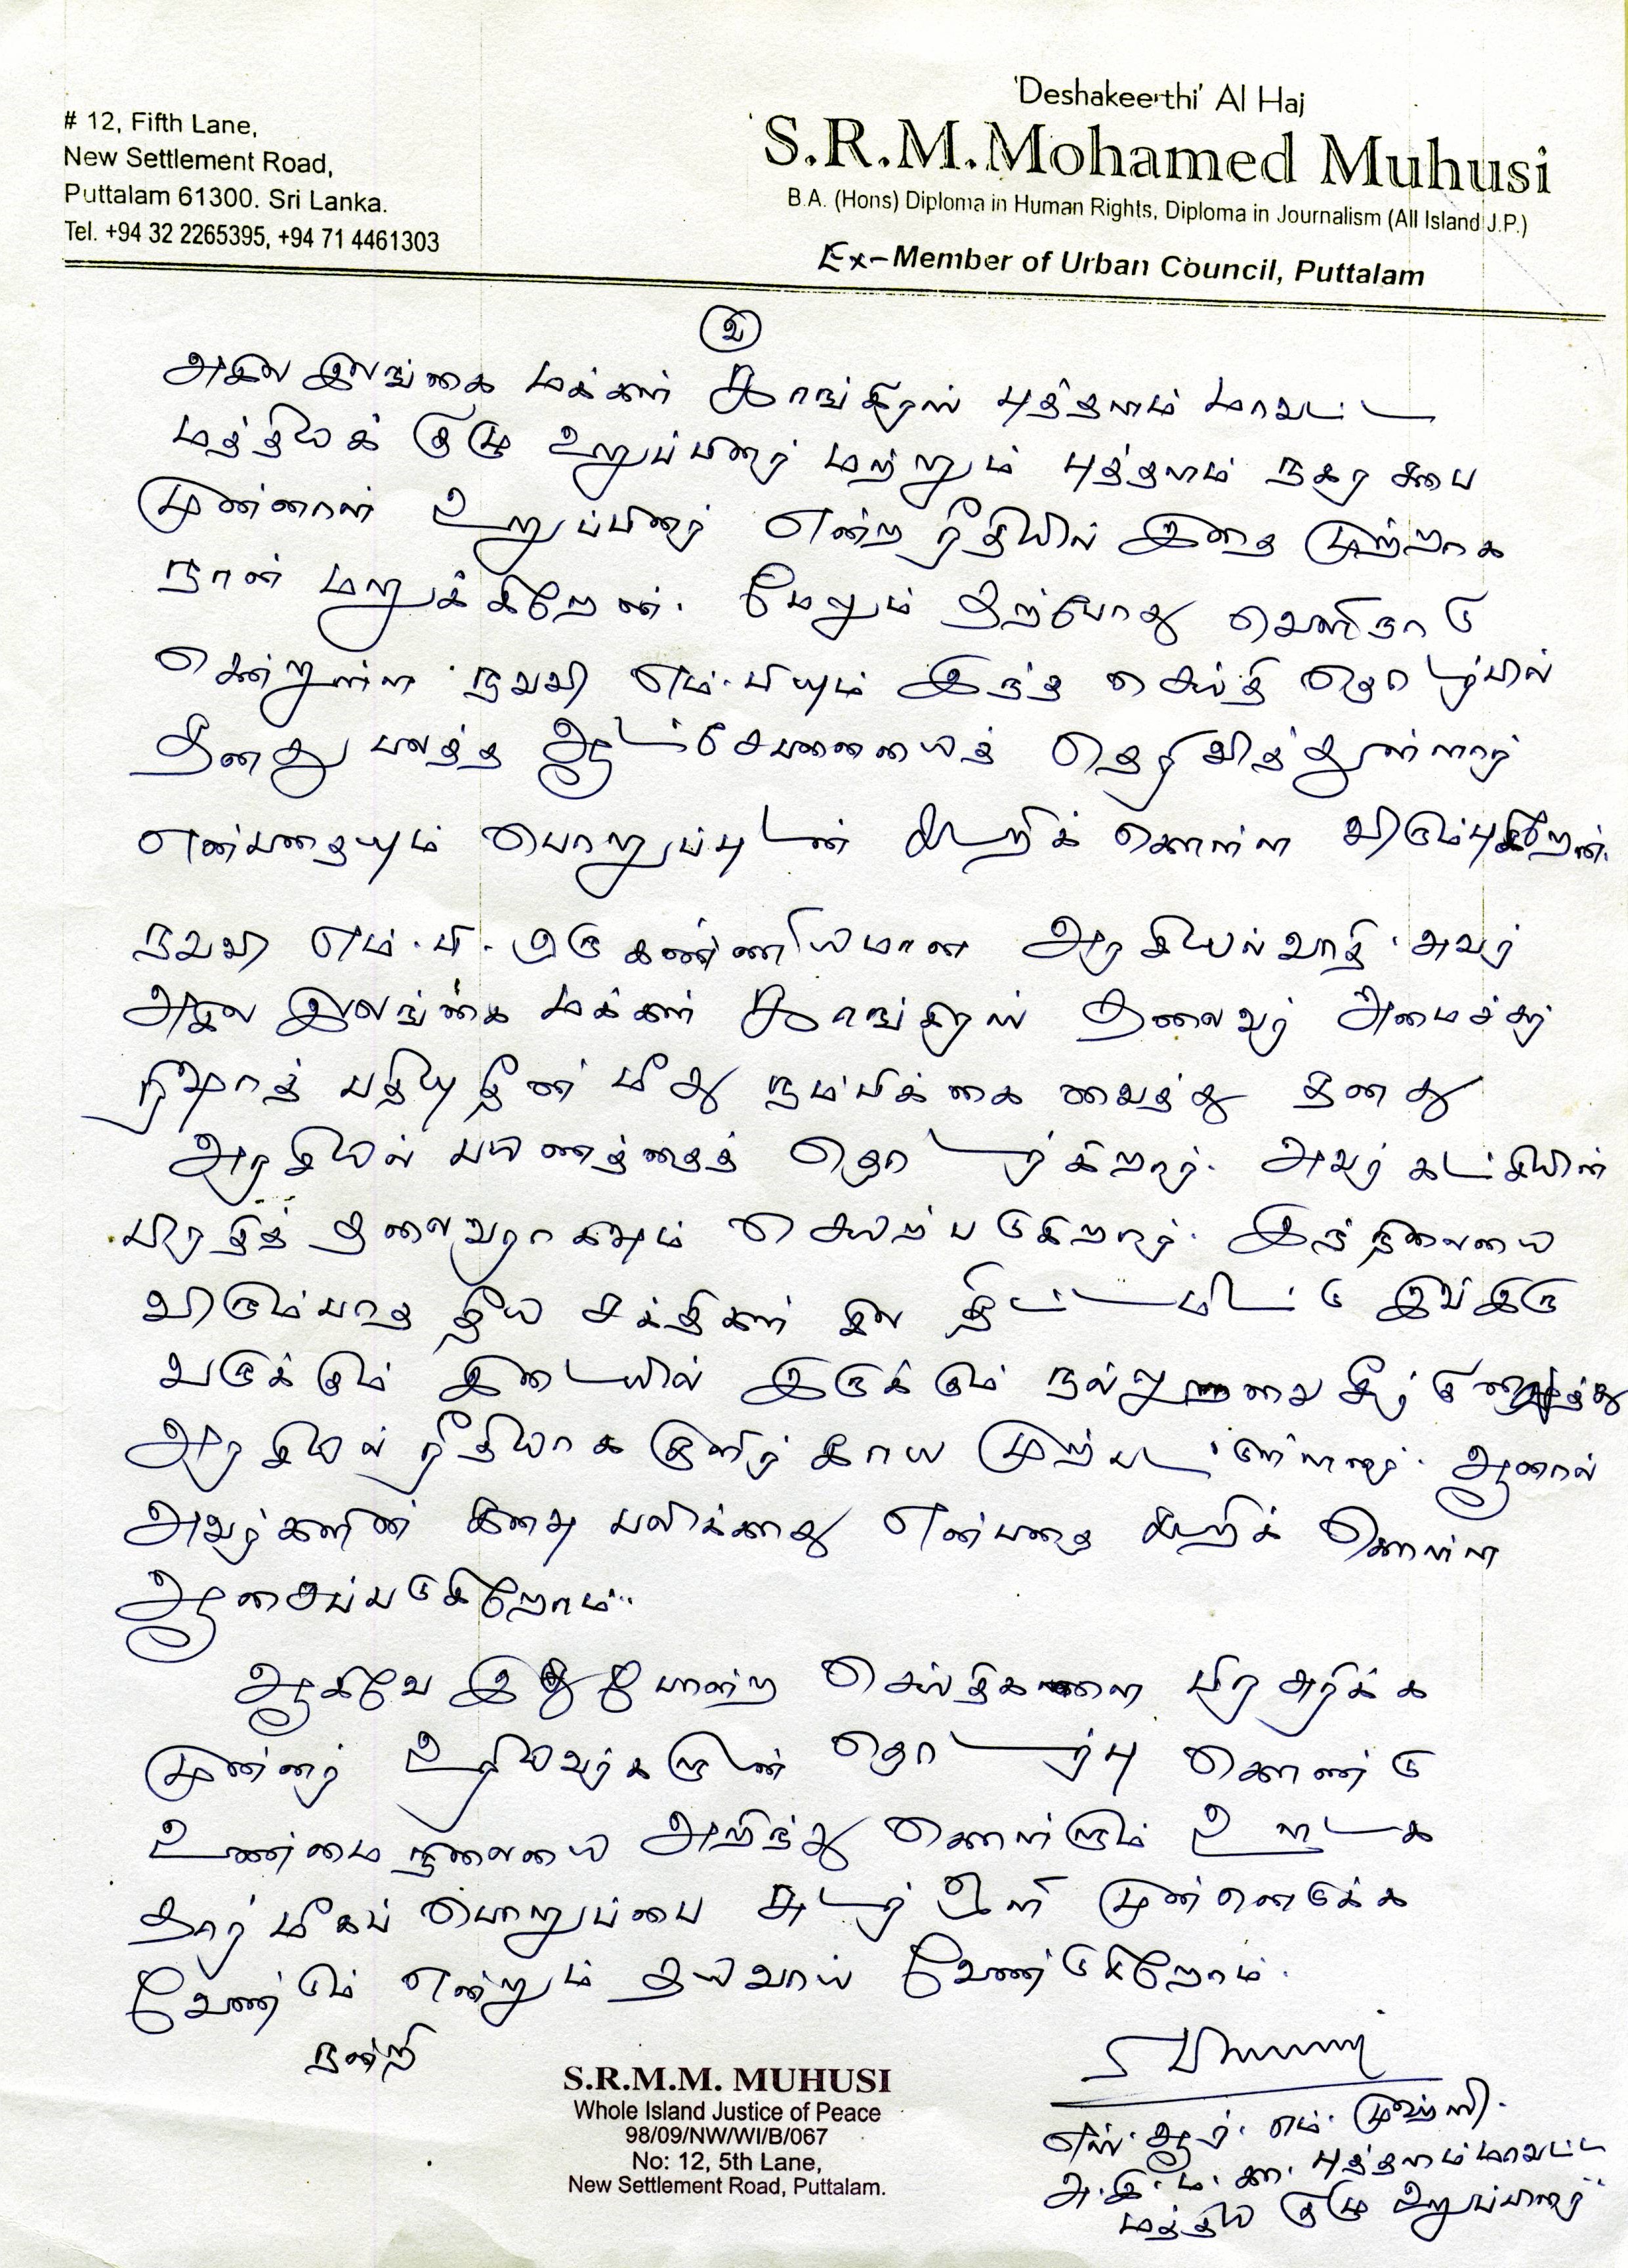 'Deshakeerthi' Al Haj
S.R.M.Mohamed Muhusi
B.A. (Hons) Diploma in Human Rights, Diploma in Journalism (All Island J.P.)
Ex-Member of Urban Council, Puttalam
# 12, Fifth Lane,
New Settlement Road,
Puttalam 61300. Sri Lanka.
Tel. +94 32 2265395, +94 71 4461303
2
அகில இலங்கை மக்கள் காங்கிரஸ் புத்தளம் மாவட்ட
மத்தியக் குழு உறுப்பினர் மற்றும் புத்தளம் நகர சபை
முன்னாள் உறுப்பினர் என்ற ரீதியில் இதை முற்றாக
நான் மறுக்கிறேன். மேலும் தற்போது வெளிநாடு
சென்றுள்ள நவவி எம்.பியும் இந்த செய்தி தொடர்பில்
தனது பலத்த ஆட்சேபனையைத் தெரிவித்துள்ளார்
என்பதையும் பொறுப்புடன் கூறிக் கொள்ள விரும்புகிறேன்.
நவவி எம்.பி. ஒரு கண்ணியமான அரசியல்வாதி. அவர்
அகில இலங்கை மக்கள் காங்கிரஸ் தலைவர் அமைச்சர்
ரிஷாத் பதியுதீன் மீது நம்பிக்கை வைத்து தனது
அரசியல் பயணத்தைத் தொடர்கிறார். அவர் கட்சியின்
பிரதித் தலைவராகவும் செயற்படுகிறார். இந்நிலையை
விரும்பாத தீய சக்திகள் சில திட்டமிட்டு இவ்இரு
வருக்கும் இடையில் இருக்கும் நல்லுறவை சீர்குலைத்து
அரசியல் ரீதியாக குளிர் காய முற்பட்டுள்ளனர். ஆனால்
அவர்களின் கனவு பலிக்காது என்பதை கூறிக் கொள்ள
ஆசைப்படுகிறோம்.
ஆகவே இது போன்ற செய்திகளை பிரசுரிக்க
முன்னர் உரியவர்களுடன் தொடர்பு கொண்டு
உண்மை நிலையை அறிந்து கொள்ளும் ஊடக
தார்மீகப் பொறுப்பை சுடர் ஒளி முன்னெடுக்க
வேண்டும் என்றும் தயவாய் வேண்டுகிறோம்.
நன்றி
S.R.M.M. MUHUSI
Whole Island Justice of Peace
98/09/NW/WI/B/067
No: 12, 5th Lane,
New Settlement Road, Puttalam.
எஸ். ஆர். எம். முஹ்ஸி.
அ. இ. ம. கா. புத்தளம் மாவட்ட
மத்திய குழு உறுப்பினர்